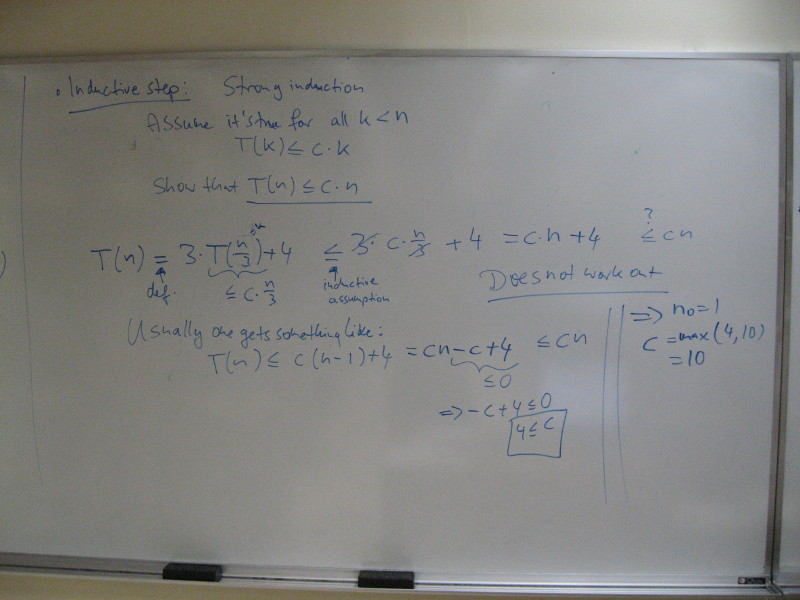 • Inductive step: Strong induction
Assume it's true for all k < n
T(k) ≤ c·k
Show that T(n) ≤ c·n
T(n) = 3·T(n/3)+4 ≤ 3·c·n/3 + 4 = c·n+4 ≤ cn
?
<n
def. ≤ c·n/3 inductive assumption
Does not work out
Usually one gets something like:
T(n) ≤ c(n-1)+4 = cn-c+4 ≤ cn
≤0
=> -c+4≤0
4≤c
=> n₀=1
c = max(4,10)
=10
)